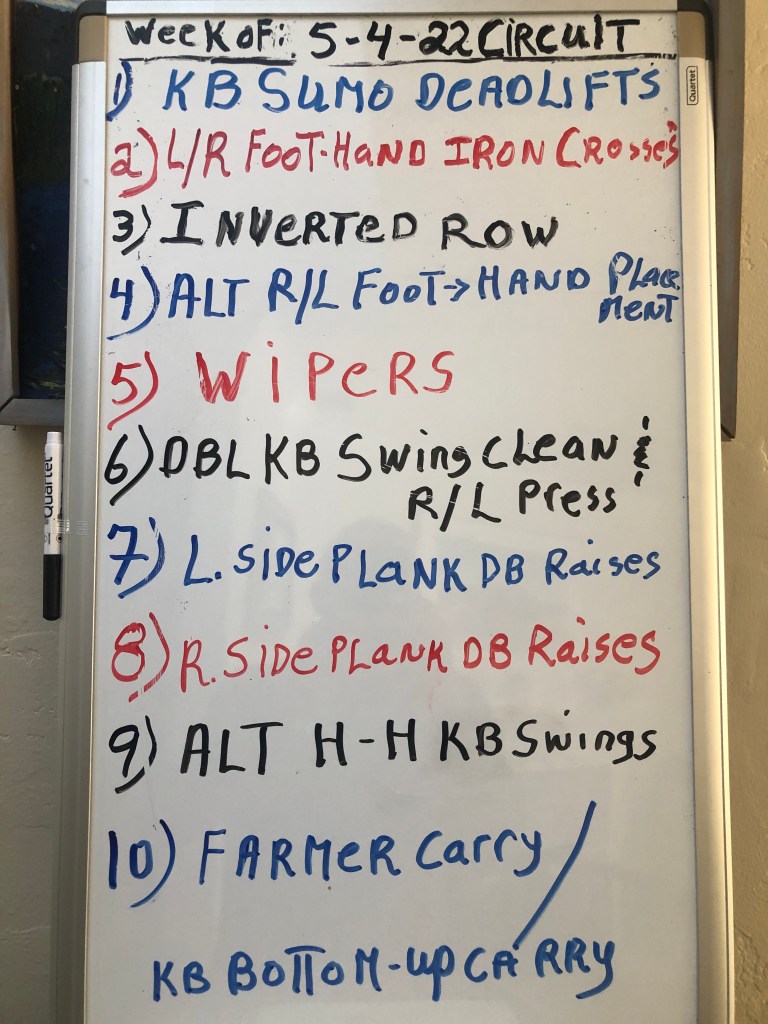 Week of: 5-4-22 CIRCUIT
Quartet
1) KB SUMO DEADLIFTS
2) L/R FOOT-HAND IRON CROSSES
3) INVERTED ROW
4) ALT R/L FOOT→HAND PLACE
MENT
5) WIPERS
6) DBL KB Swing CLEAN &
R/L PRESS
Quartet
7) L. SIDE PLANK DB Raises
8) R. SIDE PLANK DB Raises
9) ALT H-H KB Swings
10) FARMER CARRY /
KB BOTTOM-UP CARRY